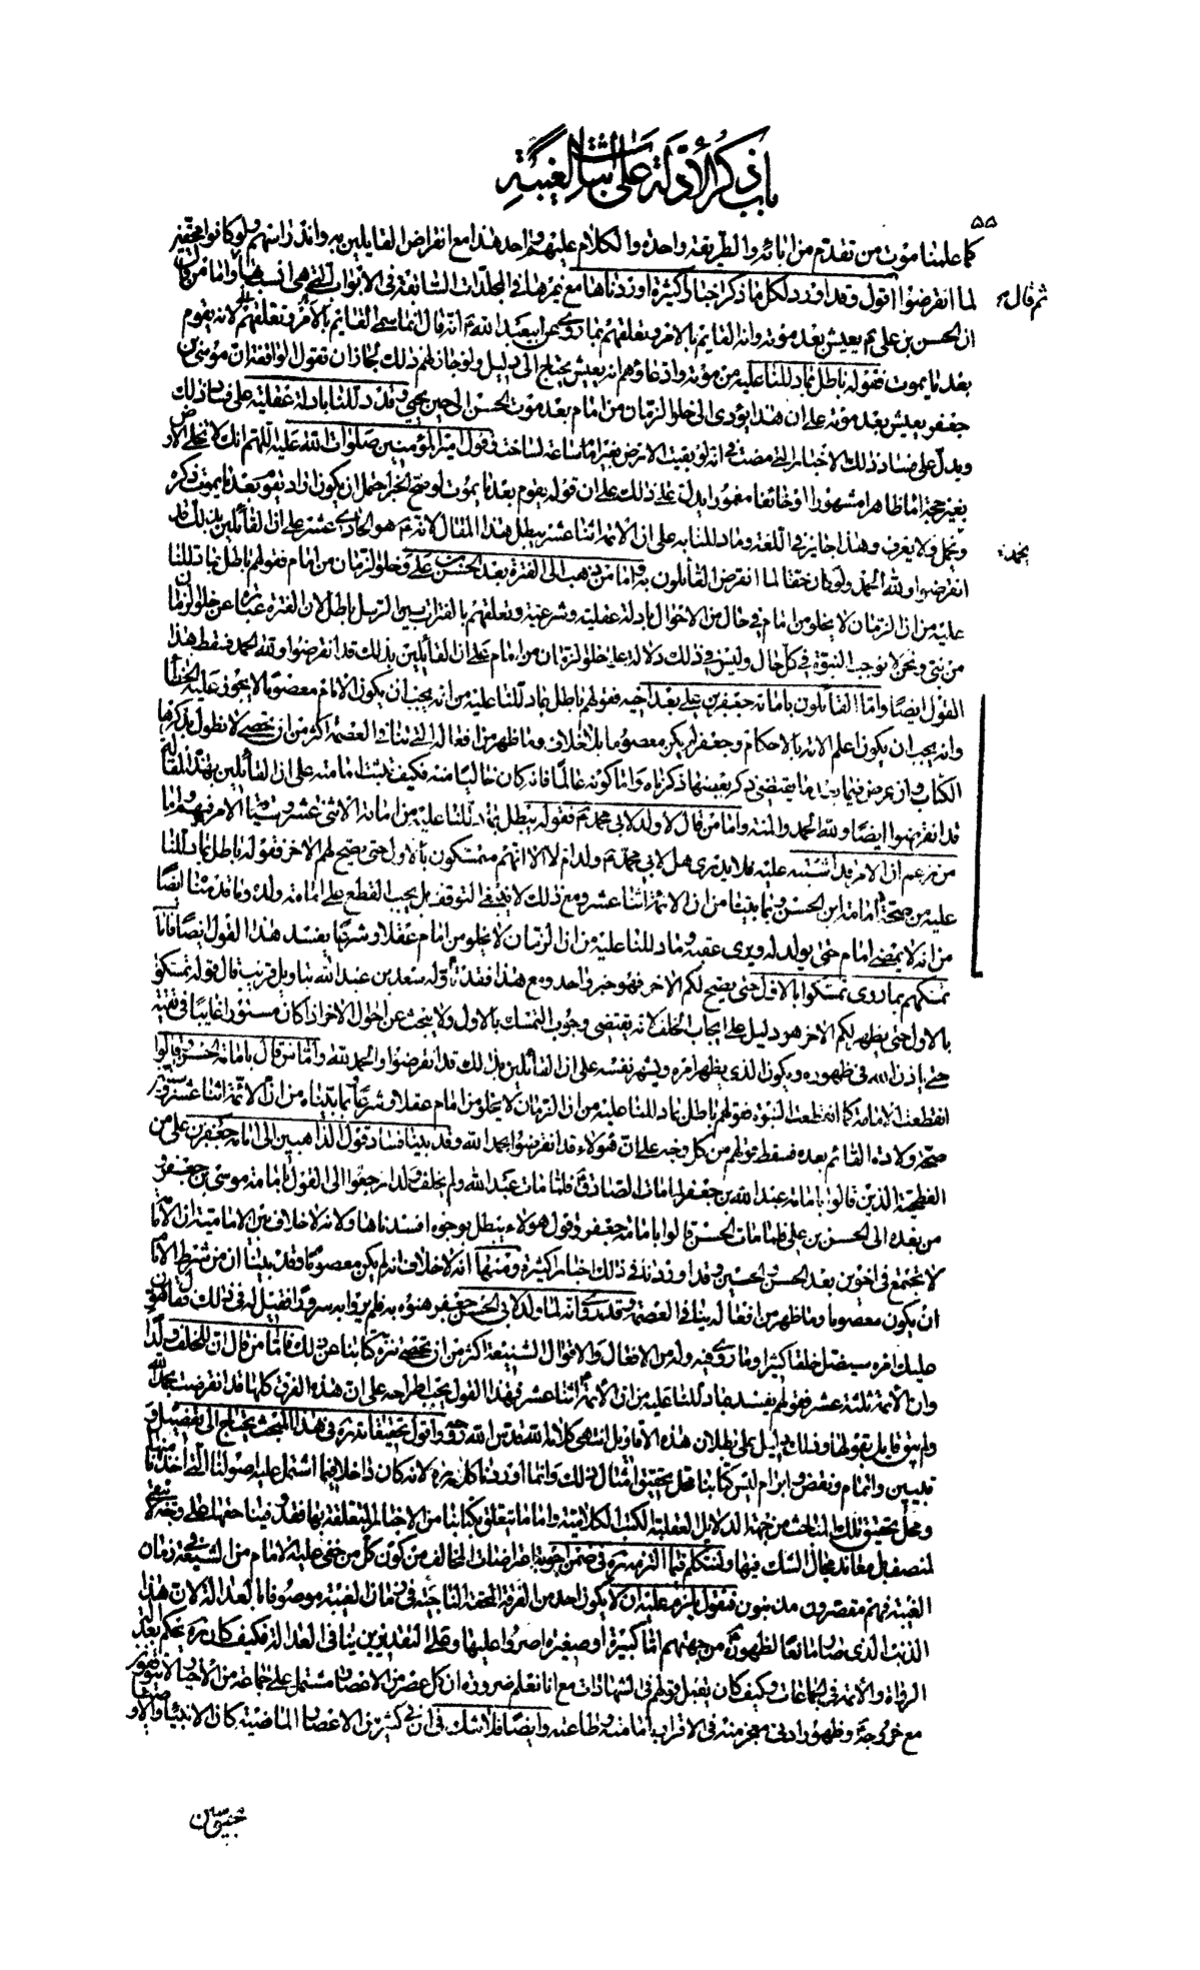 باب ذكر الأدلة على إثبات الغيبة
۵۵
كما علمنا موت من تقدم من آبائه والطريقة واحدة والكلام عليهم واحد هذا مع انقراض القائلين به واندراسهم ولو كانوا محقين
ثم قال ره
لما انقرضوا اقول وقد اورد لكل ما ذكر اخبارا كثيرة اوردناها مع غيرها في المجلدات السابقة في الابواب التي هي انسب بها واما من قال
ان الحسن بن علي ع يعيش بعد موته وانه القايم بالامر وتعلقهم بما روي عن ابي عبد الله ع انه قال انما سمي القايم لانه يقوم
بعد ما يموت فقوله باطل بما دللنا عليه من موته وادعاؤهم انه يعيش يحتاج الى دليل ولو جاز لهم ذلك لجاز ان تقول الواقفة ان موسى بن
جعفر يعيش بعد موته على ان هذا يؤدي الى خلو الزمان من امام بعد موت الحسن الى حين يحيى وقد دللنا بادلة عقلية على فساد ذلك
ويدل على فساد ذلك الاخبار التي مضت في انه لو بقيت الارض بغير امام ساعة لساخت وقول امير المؤمنين صلوات الله عليه اللهم انك لا تخلي الارض
بغير حجة اما ظاهرا مشهورا او خائفا مغمورا يدل على ذلك على ان قوله يقوم بعد ما يموت لو صح الخبر احتمل ان يكون اراد يقوم بعد ما يموت ذكره
ويخمل ولا يعرف وهذا جايز في اللغة وما دللنا به على ان الائمة اثنا عشر يبطل هذا المقال لانه ع هو الحادي عشر على ان القائلين بذلك قد
انقرضوا ولله الحمد ولو كان حقا لما انقرض القائلون به واما من ذهب الى الفترة بعد الحسن بن علي وخلو الزمان من امام فقولهم باطل بما دللنا
عليه من ان الزمان لا يخلو من امام في حال من الاحوال بادلة عقلية وشرعية وتعلقهم بالفترات بين الرسل باطل لان الفترة عبارة عن خلو الزمان
من نبي ونحن لا نوجب النبوة في كل حال وليس في ذلك دلالة على خلو الزمان من امام على ان القائلين بذلك قد انقرضوا ولله الحمد فسقط هذا
القول ايضا واما القائلون بامامة جعفر بن علي بعد اخيه فقولهم باطل بما دللنا عليه من انه يجب ان يكون الامام معصوما لا يجوز عليه الخطأ
وانه يجب ان يكون اعلم الامة بالاحكام وجعفر لم يكن معصوما بلا خلاف وما ظهر من افعاله التي تنافي العصمة اكثر من ان تحصى لا نطول بذكرها
الكتاب وان عرض فيما بعد ما يقتضي ذكر بعضها ذكرناه واما كونه عالما فانه كان خاليا منه فكيف تثبت امامته على ان القائلين بهذه المقالة
قد انقرضوا ايضا ولله الحمد والمنة واما من قال لا ولد لابي محمد ع فقوله يبطل بما دللنا عليه من امامة الاثني عشر وسياقة الامر فيهم واما
من زعم ان الامر قد اشتبه عليه فلا يدري هل لابي محمد ع ولد ام لا الا انهم متمسكون بالاول حتى يصح لهم الاخر فقوله باطل بما دللنا
عليه من صحة امامة ابن الحسن وبما بينا من ان الائمة اثنا عشر ومع ذلك لا ينبغي التوقف بل يجب القطع على امامة ولده وما قدمناه ايضا
من انه لا يمضي امام حتى يولد له ويرى عقبه وما دللنا عليه من ان الزمان لا يخلو من امام عقلا وشرعا يفسد هذا القول ايضا فاما
تمسكهم بما روي تمسكوا بالاول حتى يصح لكم الاخر فهو خبر واحد ومع هذا فقد تأوله سعد بن عبد الله بتاويل قريب قال قوله تمسكوا
بالاول حتى يظهر لكم الاخر هو دليل على ايجاب الخلف لانه يقتضي وجوب التمسك بالاول ولا يبحث عن احوال الاخر اذا كان مستورا غايبا في تقية
حتى ياذن الله في ظهوره ويكون الذي يظهر امره ويشهر نفسه على ان القائلين بذلك قد انقرضوا والحمد لله واما من قال بامامة الحسن وقالوا
انقطعت الامامة كما انقطعت النبوة فقولهم باطل بما دللنا عليه من ان الزمان لا يخلو من امام عقلا وشرعا وبما بيناه من ان الائمة اثنا عشر وسنبين
صحة ولادة القائم بعده فسقط قولهم من كل وجه على ان هؤلاء قد انقرضوا بحمد الله وقد بينا فساد قول الذاهبين الى امامة جعفر بن علي من
الفطحية الذين قالوا بامامة عبد الله بن جعفر لما مات الصادق ع فلما مات عبد الله ولم يخلف ولدا رجعوا الى القول بامامة موسى بن جعفر و
من بعده الى الحسن بن علي فلما مات الحسن قالوا بامامة جعفر وقول هؤلاء يبطل بوجوه افسدناها ولانه لا خلاف بين الامامية ان الامامة
لا تجتمع في اخوين بعد الحسن والحسين وقد اوردنا في ذلك اخبارا كثيرة ومنها انه لا خلاف انه لم يكن معصوما وقد بينا ان من شرط الامام
ان يكون معصوما وما ظهر من افعاله ينافي العصمة وقد روي انه لما ولد لابي الحسن جعفر هنؤه به فلم يروا به سرورا فقيل له في ذلك فقال هون
عليك امره سيضل خلقا كثيرا وما روي فيه وله من الافعال والاقوال الشنيعة اكثر من ان تحصى ننزه كتابنا عن ذلك فاما من قال ان للخلف ولدا
وان الائمة ثلثة عشر فقولهم يفسد بما دللنا عليه من ان الائمة اثنا عشر فهذا القول يجب اطراحه على ان هذه الفرق كلها قد انقرضت بحمد الله
ولم يبق قايل بقولها وذلك دليل على بطلان هذه الاقاويل انتهى كلامه قدس الله روحه واقول تحقيقاته ره في هذا المبحث يحتاج الى تفصيل و
تبيين واتمام ونقض وابرام ليس كتابنا محل تحقيق امثال ذلك وانما اوردنا كلامه ره لانه كان داخلا فيما اشتمل عليه اصولنا التي اخذنا منها
ومحل تحقيق تلك المباحث من جهة الدلايل العقلية الكتب الكلامية واما ما يتعلق بكتابنا من الاخبار المتعلقة بها فقد وفينا حقها على وجه لا يبقى
لمنصف بل معاند مجال الشك فيها ولنتكلم فيما التزمه ره في ضمن اجوبة اعتراضات المخالف من كون كل من خفي عليه الامام من الشيعة في زمان
الغيبة فهم مقصرون مذنبون فنقول يلزم عليه ان لا يكون احد من الفرقة المحقة الناجية في زمان الغيبة موصوفا بالعدالة لان هذا
الذنب الذي صار مانعا لظهوره ع من جهتهم اما كبيرة او صغيرة اصروا عليها وعلى التقديرين ينافي العدالة فكيف كان ره يحكم بعدالة
الرواة والائمة في الجماعات وكيف كان يقبل قولهم في الشهادات مع انا نعلم ضرورة ان كل عصر من الاعصار مشتمل على جماعة من الاخيار لا يتوقفون
مع خروجه ع وظهور ادنى معجز منه في الاقرار بامامته وطاعته وايضا فلا شك في ان في كثير من الاعصار الماضية كان الانبياء والاوصياء